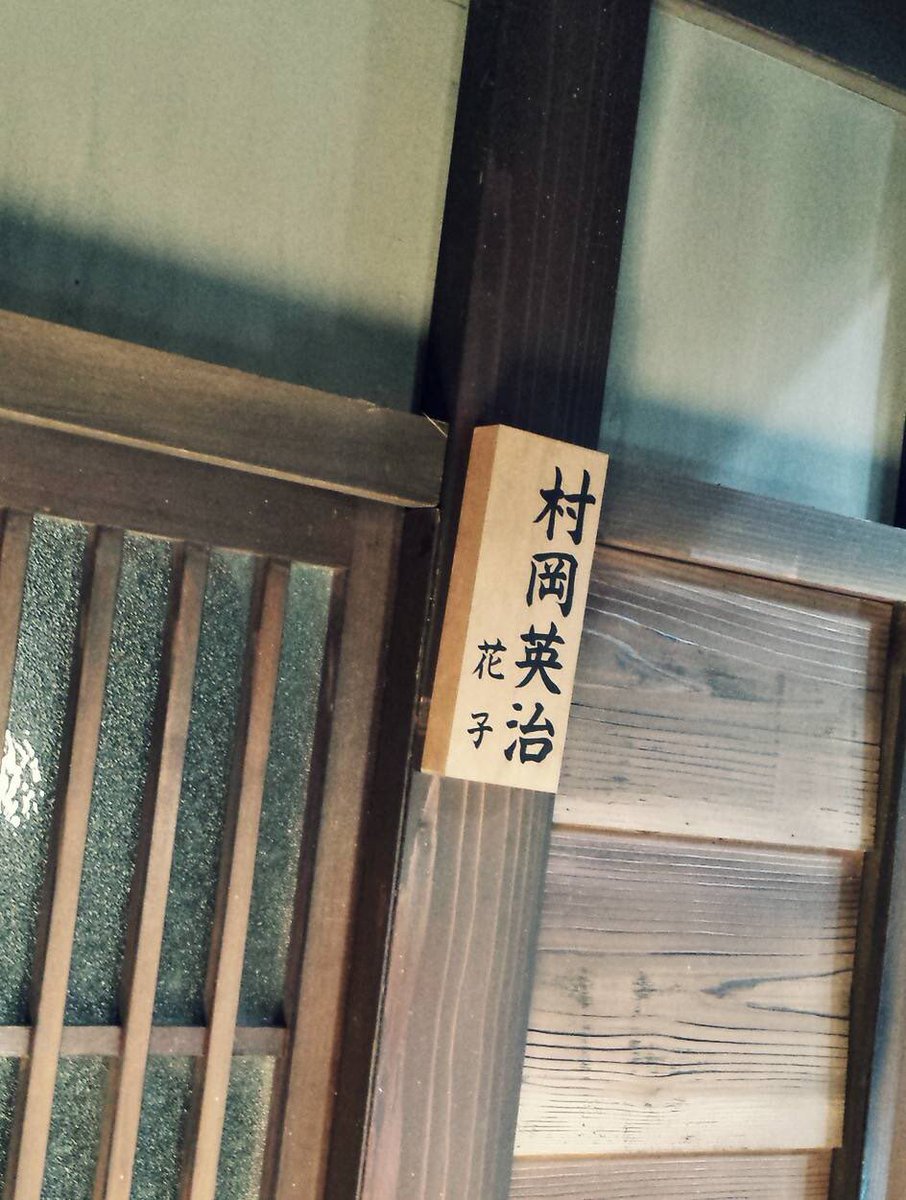 村岡英治
花子